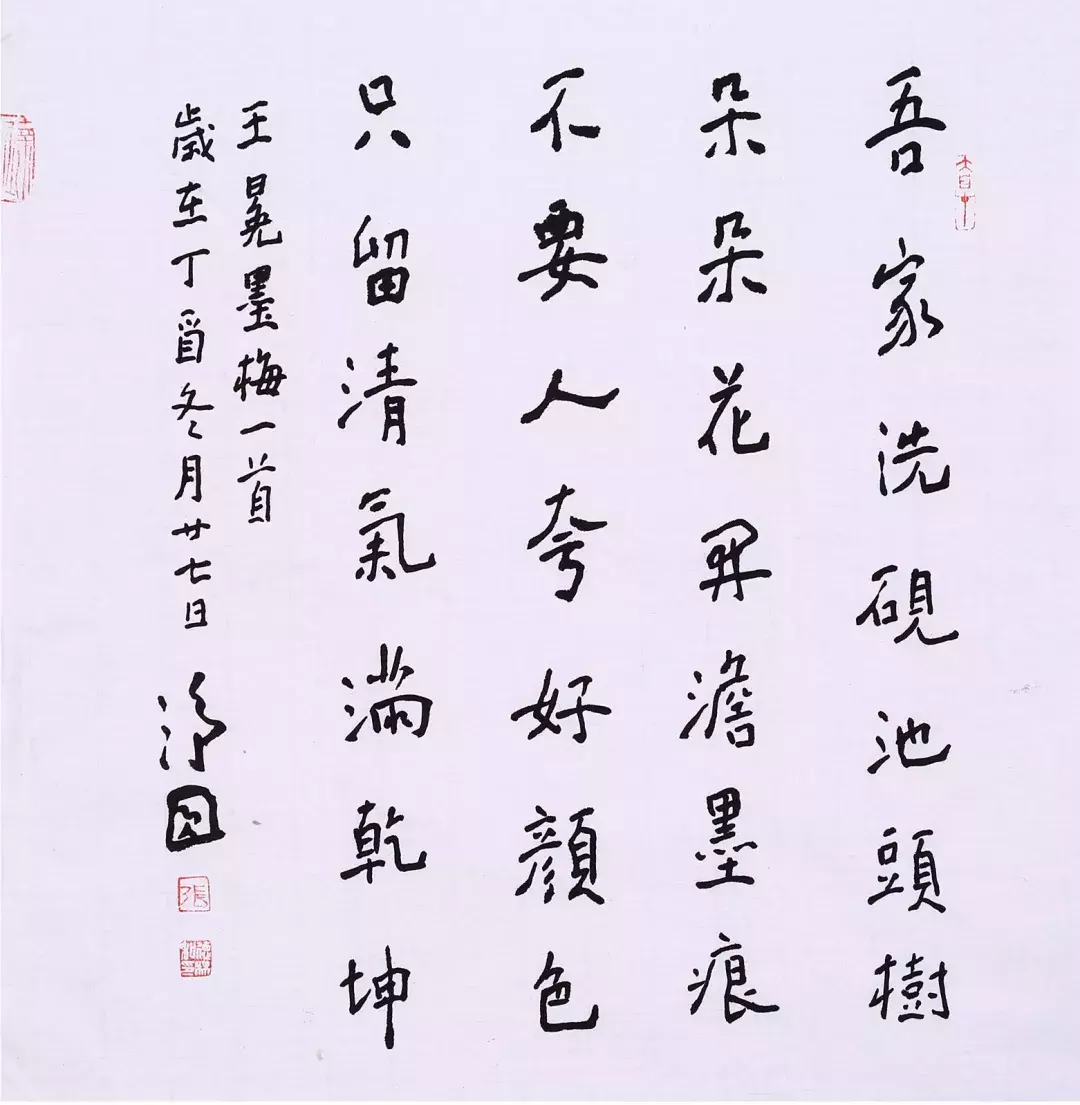 吾家洗硯池頭樹
朵朵花開澹墨痕
不要人夸好顏色
只留清氣滿乾坤
王冕墨梅一首
歲在丁酉冬月廿七日
張